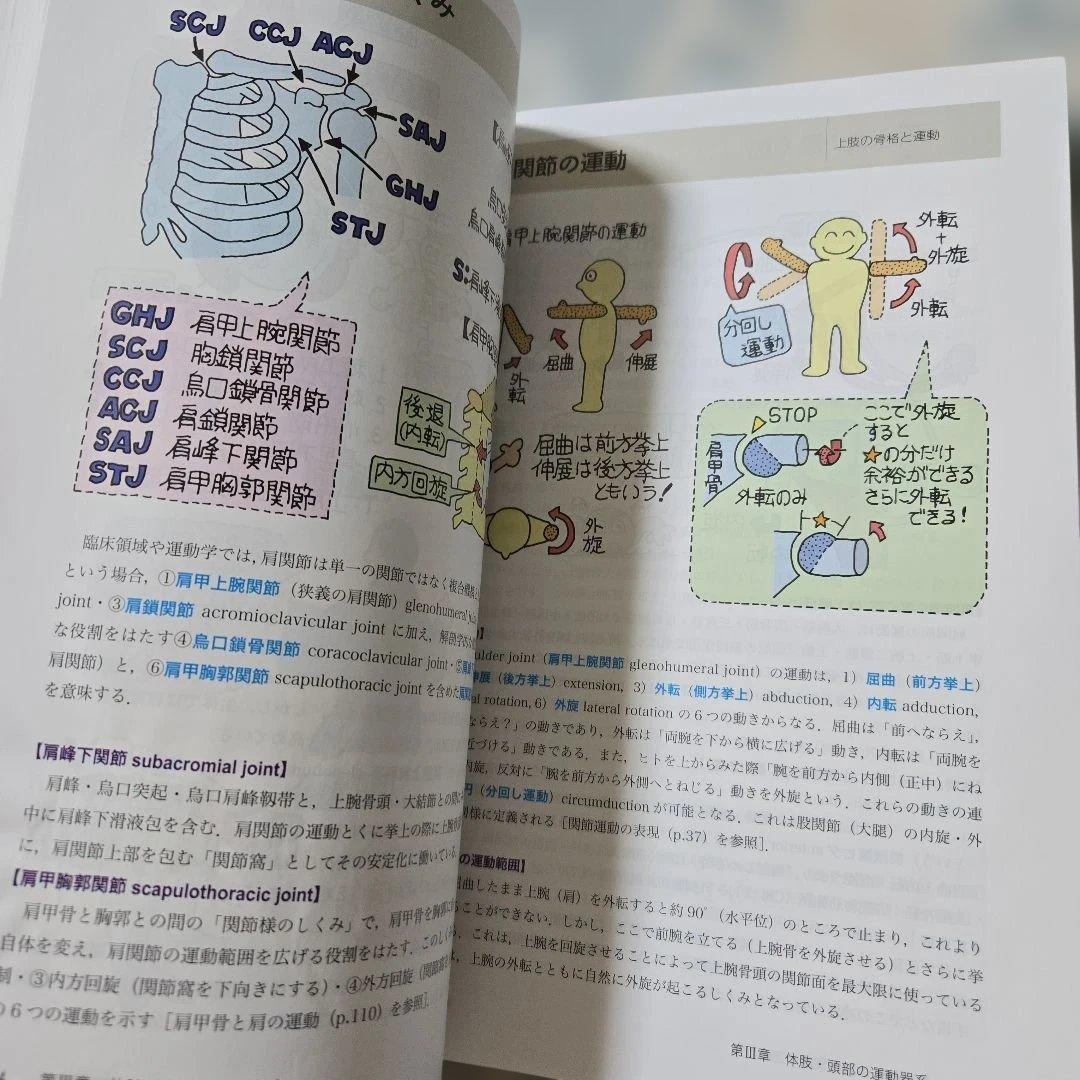 み
SCJ CCJ ACJ
SAJ
GHJ
STJ
GHJ 肩甲上腕関節
SCJ 胸鎖関節
CCJ 烏口鎖骨関節
ACJ 肩鎖関節
SAJ 肩峰下関節
STJ 肩甲胸郭関節
S:肩峰下
後退
(内転)
内方回旋
臨床領域や運動学では,肩関節は単一の関節ではなく複合
という場合,①肩甲上腕関節(狭義の肩関節)glenohumeral
joint・③肩鎖関節 acromioclavicular joint に加え,解剖学
な役割をはたす④烏口鎖骨関節 coracoclavicular joint・
肩関節)と,⑥肩甲胸郭関節 scapulothoracic joint を含めた
を意味する.
【肩峰下関節 subacromial joint】
肩峰・烏口突起・烏口肩峰靱帯と,上腕骨頭・大結節との間に
中に肩峰下滑液包を含む.肩関節の運動とくに挙上の際に上腕
に,肩関節上部を包む「関節窩」としてその安定化に働いている
【肩甲胸郭関節 scapulothoracic joint】
肩甲骨と胸郭との間の「関節様のしくみ」で,肩甲骨を胸郭
自体を変え,肩関節の運動範囲を広げる役割をはたす.このしくみ
制・③内方回旋(関節窩を下向きにする)・④外方回旋(関節窩
の6つの運動を示す[肩甲骨と肩の運動(p.110)を参照].
上肢の骨格と運動
関節の運動
肩甲上腕関節の運動
外転
屈曲
伸展
屈曲は前方挙上
伸展は後方挙上
ともいう!
外旋
分回し
運動
外転
+
外旋
外転
STOP
肩甲骨
外転のみ
ここで外旋
すると
★の分だけ
余裕ができる
さらに外転
できる!
ulder joint(肩甲上腕関節 glenohumeral joint)の運動は,1)屈曲(前方挙上)
伸展(後方挙上)extension, 3)外転(側方挙上)abduction, 4)内転 adduction,
l rotation, 6)外旋 lateral rotation の6つの動きからなる.屈曲は「前へならえ」,
ならえ?」の動きであり,外転は「両腕を下から横に広げる」動き,内転は「両腕を
近づける」動きである.また,ヒトを上からみた際「腕を前方から内側(正中)にね
内旋,反対に「腕を前方から外側へとねじる」動きを外旋という.これらの動きの連
円(分回し運動)circumduction が可能となる.これは股関節(大腿)の内旋・外
様に定義される[関節運動の表現(p.37)を参照].
の運動範囲】
屈曲したまま上腕(肩)を外転すると約90°(水平位)のところで止まり,これより
ることができない.しかし,ここで前腕を立てる(上腕骨を外旋させる)とさらに挙
これは,上腕を回旋させることによって上腕骨頭の関節面を最大限に使っている
上腕の外転とともに自然に外旋が起こるしくみとなっている.
第Ⅲ章 体肢・頭部の運動器系